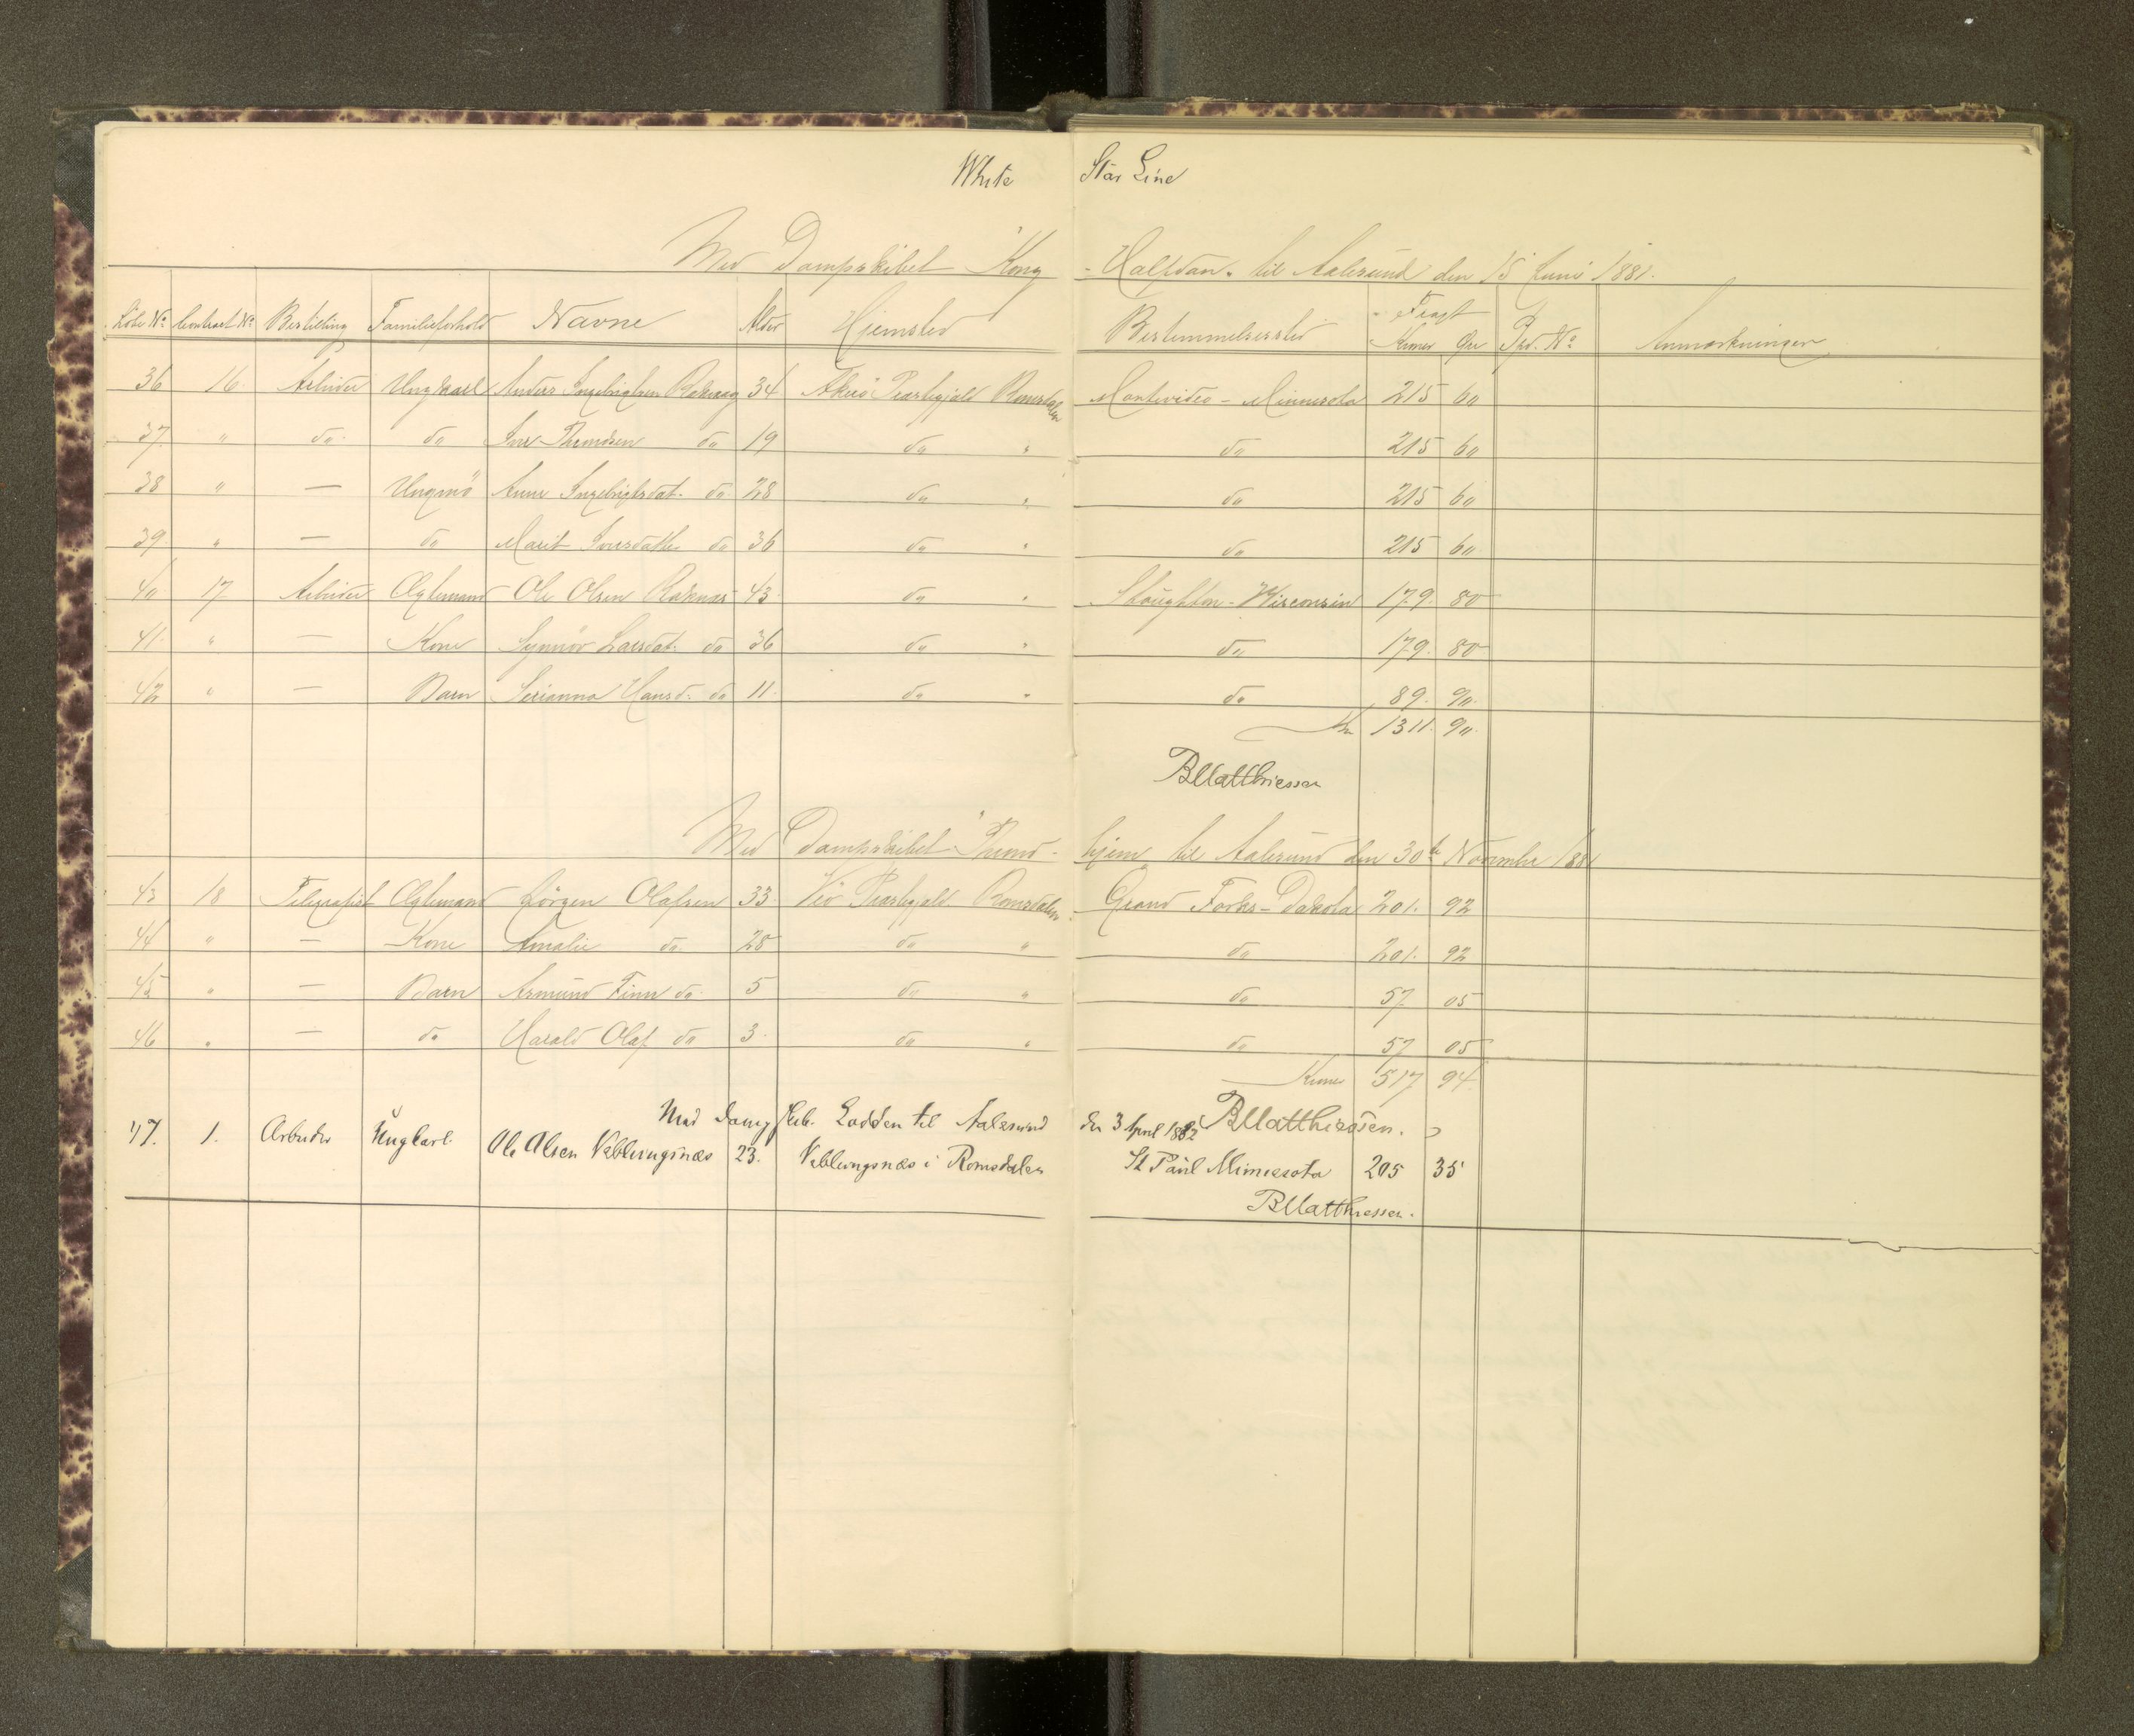 White Star Line
Med Dampskibet "Kong Halfdan" til Aalesund den 15 Juni 1881.
Löbe No. Contract No. Bestilling Familieforhold Navne Alder Hjemsted Bestemmelsessted Fragt
Kroner Øre No. Anmærkninger
36 16. Arbeider Ungkarl Anders Ingebrigtsen Raknæs 34 Akerö Præstegjeld Romsdalen Montevideo - Minnesota 215 60
37. " do do Iver Thomdsen do 19 do " do 215 60
38 " — Ungmö Anne Ingebrigtsdat. do 28 do " do 215 60
39. " — do Marit Iversdatter do 36 do " do 215 60
40 17 Arbeider Ægtemand Ole Olsen Raknæs 43 do " Stoughton - Wisconsin 179. 80
41. " — Kone Synnöv Larsdat. do 36 do " do 179. 80
42 " — Barn Serianna Hansd. do 11. do " do 89. 90.
Kr 1311. 90.
BMatthiessen
Med Dampskibet "Thrond-hjem" til Aalesund den 30te November 1881
43 18 Telegrafist Ægtemand Jörgen Olafsen 33 Veö Præstegjeld Romsdalen Grand Forks - Dakota 201. 92
44 " — Kone Amalie do. 28 do " do 201. 92
45 " — Barn Asmund Finn do. 5 do " do 57 05
46 " — do Harald Olaf do 3. do " do 57 05
Kroner 517 94.
Med Dampskib. Lodden til Aalesund den 3 April 1882 BMatthiessen.
47. 1. Arbeider Ungkarl. Ole Olsen Veblungsnæs 23. Veblungsnæs i Romsdalen St Paul Minnesota 205 35
BMatthiessen.